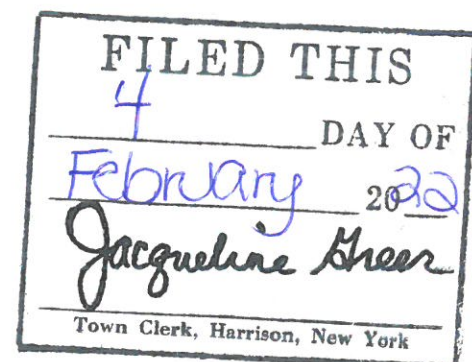 FILED THIS
4
DAY OF
February 2022
Jacqueline Greer
Town Clerk, Harrison, New York